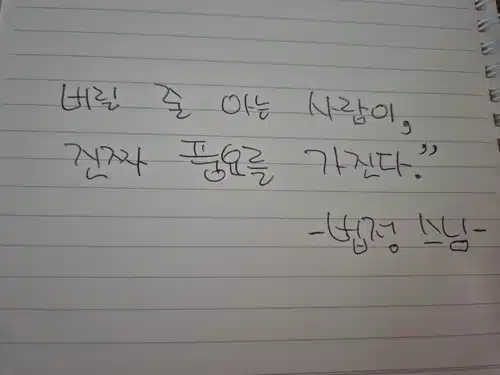 버릴 줄 아는 사람이,
진짜 풍요를 가진다."
-법정 스님-